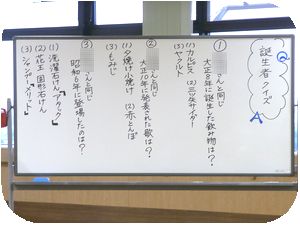 誕生者クイズ
Q
A
① さんと同じ
大正8年に誕生した飲み物は?
(1)カルピス (2)三ツ矢サイダー
(3)ヤクルト
② さんと同じ
大正10年に発表された歌は?
(1)夕焼け小焼け (2)赤とんぼ
(3)もみじ
③ さんと同じ
昭和6年に登場したのは?
(1)洗濯石けん「アタック」
(2)花王 固形石けん
(3)シャンプー「メリット」